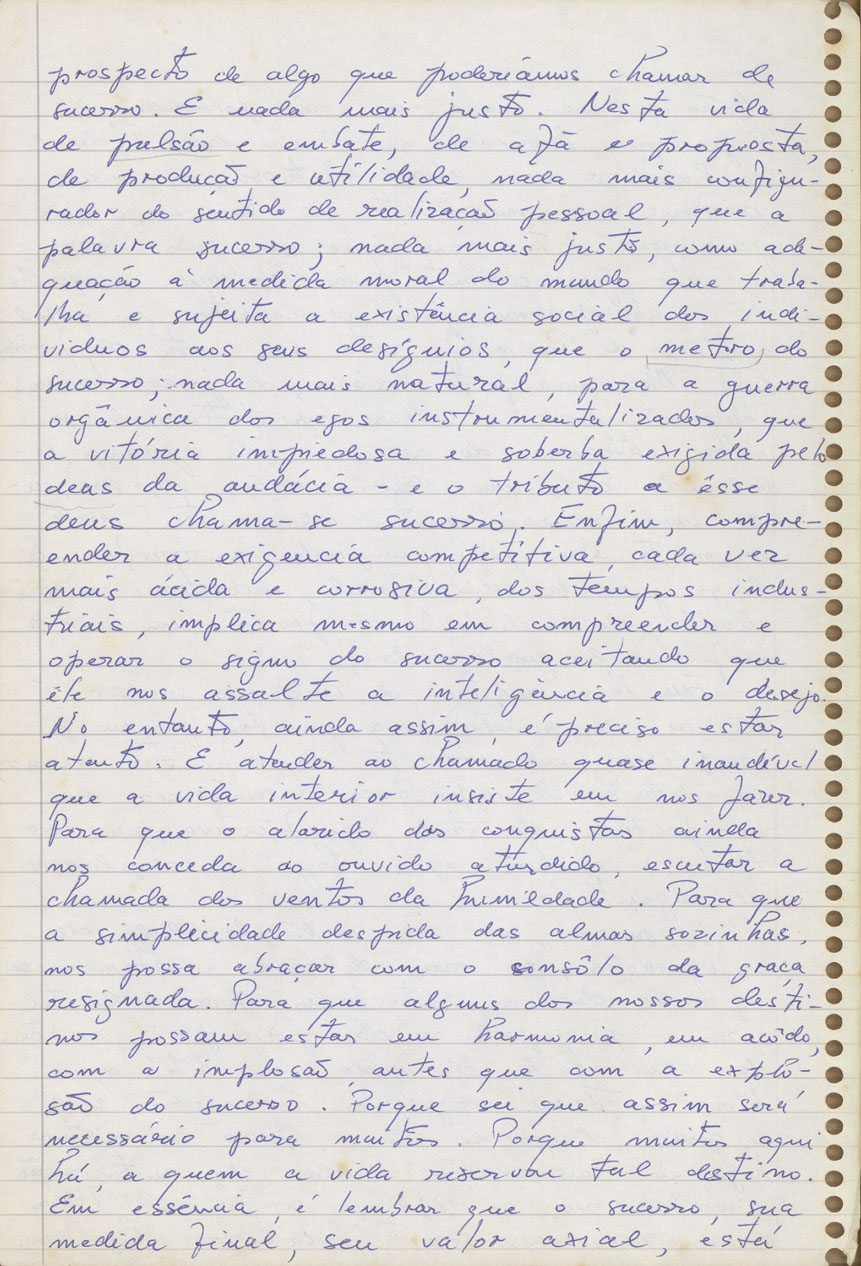 prospecto de algo que poderiámos chamar de
sucesso. E nada mais justo. Nesta vida
de pulsão e embate, de afã e proposta,
de produção e utilidade, nada mais configu-
rador do sentido de realização pessoal, que a
palavra sucesso; nada mais justo, como ade-
quação à medida moral do mundo que traba-
lha e sujeita a existência social dos indi-
viduos aos seus desígnios, que o metro do
sucesso; nada mais natural, para a guerra
orgânica dos egos instrumentalizados, que
a vitória impiedosa e soberba exigida pelo
deus da audácia - e o tributo a êsse
deus chama-se sucesso. Enfim, compre-
ender a exigencia competitiva, cada vez
mais ácida e corrosiva, dos tempos indus-
triais, implica mesmo em compreender e
operar o signo do sucesso aceitando que
êle nos assalte a inteligência e o desejo.
No entanto, ainda assim, é preciso estar
atento. E atender ao chamado quase inaudível
que a vida interior insiste em nos fazer.
Para que o alarido das conquistas ainda
nos conceda ao ouvido aturdido, escutar a
chamada dos ventos da humildade. Para que
a simplicidade despida das almas sozinhas,
nos possa abraçar com o consôlo da graça
resignada. Para que alguns dos nossos desti-
nos possam estar em harmonia, em acôdo,
com a implosão, antes que com a explo-
são do sucesso. Porque sei que assim será
necessário para muitos. Porque muitos aqui
há, a quem a vida reservou tal destino.
Em essência, é lembrar que o sucesso, sua
medida final, seu valor axial, está